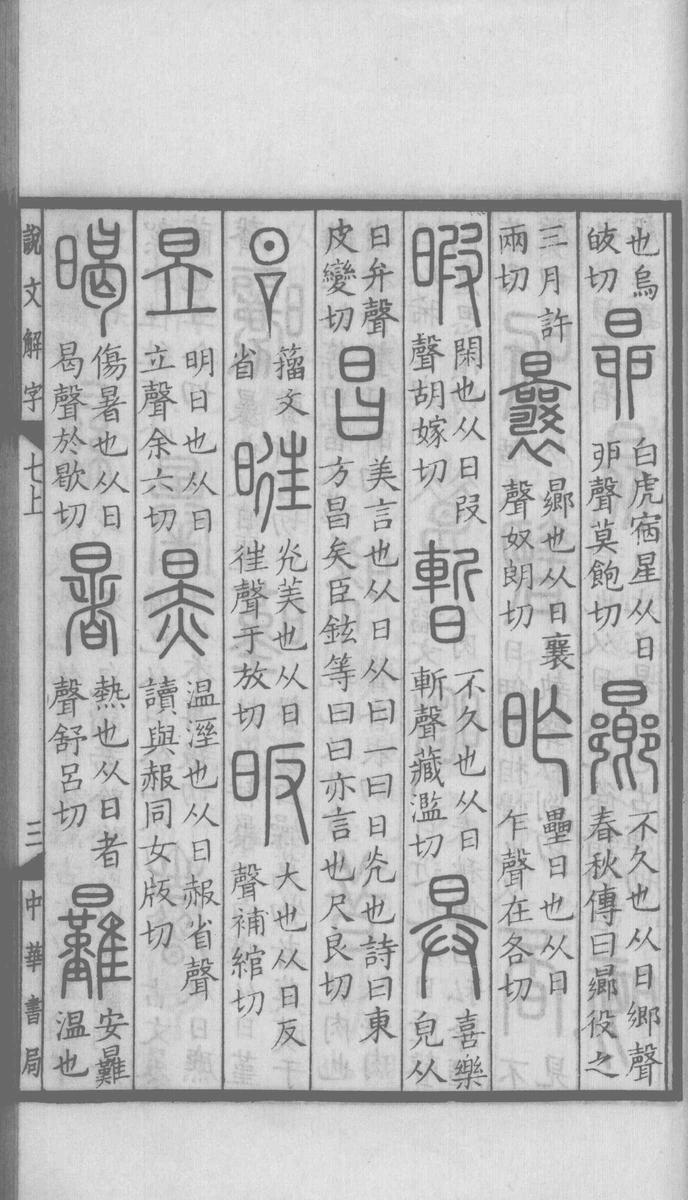 也烏皎切 昴 白虎宿星从日卯聲莫飽切 曏 不久也从日鄉聲春秋傳曰曏役之
三月許兩切 曩 曏也从日襄聲奴朗切 昨 壘日也从日乍聲在各切
暇 閑也从日叚聲胡嫁切 暫 不久也从日斬聲藏濫切 昪 喜樂皃从
日弁聲皮變切 昌 美言也从日从曰一曰日光也詩曰東方昌矣臣鉉等曰曰亦言也尺良切
籀文省 暀 光美也从日往聲于放切 昄 大也从日反聲補綰切
昱 明日也从日立聲余六切 温溼也从日赧省聲讀與赧同女版切
暍 傷暑也从日曷聲於歇切 暑 熱也从日者聲舒呂切 㬮 安㬮温也
說文解字 七上 三 中華書局